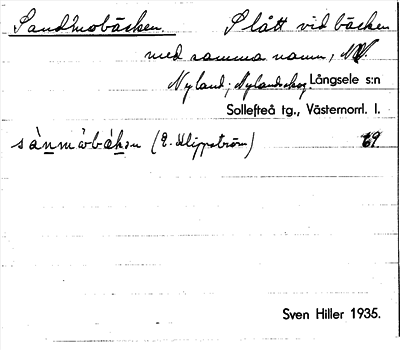 Sandmobäcken. Slått vid bäcken
med samma namn, NV.
Nyland; Nylandskog. Långsele s:n
Sollefteå tg., Västernorrl. l.
sànmobák:n (E. Klippström) 69.
Sven Hiller 1935.